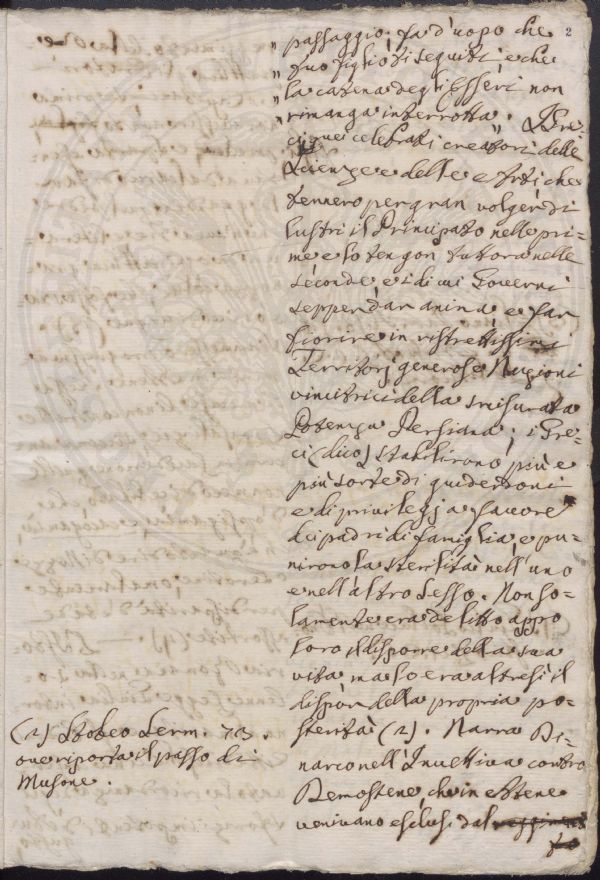 2
" passaggio. fa d'uopo che
" tuo figlio ti seguiti e che
" la catena degli Esseri non
" rimanga interrotta. " I Gre=
ci quei celebrati creatori delle
Scienze e delle Arti che
tennero per gran volger di
lustri il Principato nelle pri=
me e lo tengon tuttora nelle
seconde, e di cui Governi
sepper dar anima e far
fiorire in ristrettissimi
Territorj generose Nazioni
vincitrici della smisurata
Potenza Persiana; i Gre=
ci (dico) stabilirono più e
più sorte di guiderdoni
e di privilegj a favore
dei padri di famiglia, e pu=
nirono la sterilità nell'uno
e nell'altro sesso. Non so=
lamente era delitto appo
loro il disporre della sua
vita ma lo era altresì il
dispor della propria po=
sterità (2). Narra Di=
narco nell'Invettiva contro
Demostene che in Atene
venivano esclusi dal
(2) Stobeo Serm. 73.
ove riporta il passo di
Musone.